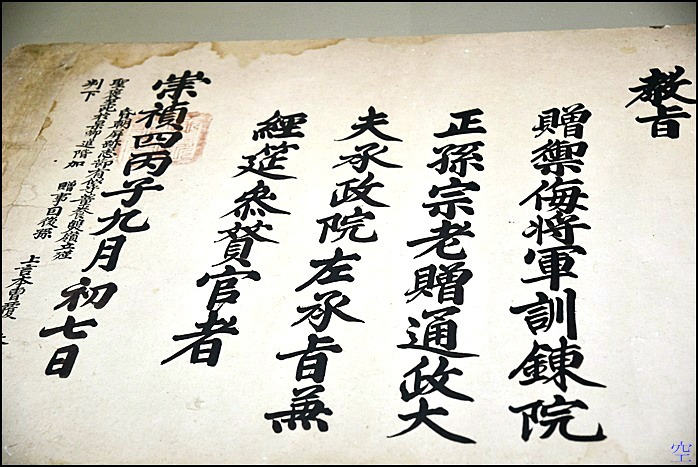 教旨
贈禦侮將軍訓鍊院
正孫宗老贈通政大
夫承政院左承旨兼
經筵叅贊官者
崇禎四丙子九月初七日
贈事因後孫
上言本曹覆
判下
空